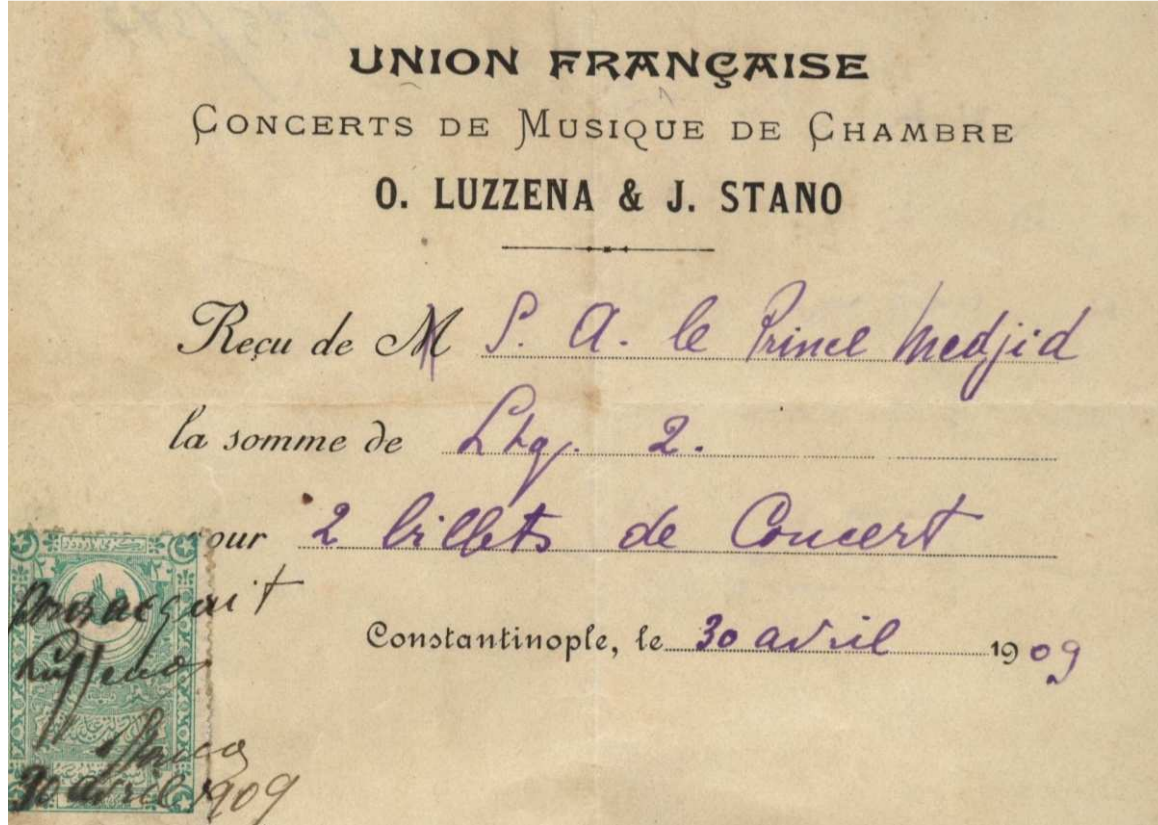 UNION FRANÇAISE
CONCERTS DE MUSIQUE DE CHAMBRE
O. LUZZENA & J. STANO
Reçu de M S. A. le Prince Medjid
la somme de Ltq. 2.
pour 2 billets de Concert
Constantinople, le 30 avril 1909
Pour acquit
Luzzena
Stano
30 avril 1909